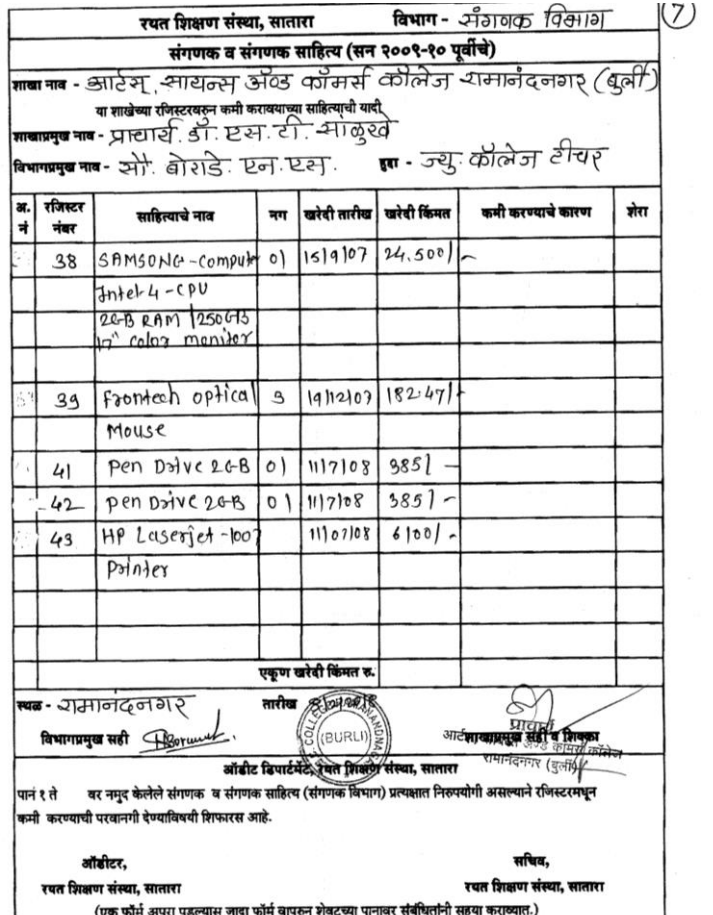 रयत शिक्षण संस्था, सातारा विभाग - संगणक विभाग
7
संगणक व संगणक साहित्य (सन २००९-१० पूर्वीचे)
शाखा नाव - आर्टस्, सायन्स अँण्ड कॉमर्स कॉलेज रामानंदनगर (बुर्ली)
या शाखेच्या रजिस्टरवरुन कमी करावयाच्या साहित्याची यादी
शाखाप्रमुख नाव - प्राचार्य. डॉ. एस. टी. साळुंखे
विभागप्रमुख नाव - सौ. बोराडे. एन. एस. हुद्दा - ज्यु. कॉलेज टीचर
अ. नं रजिस्टर नंबर साहित्याचे नाव नग खरेदी तारीख खरेदी किंमत कमी करण्याचे कारण शेरा
38 SAMSONG - Compute 01 15/9/07 24,500/-
Intel-4 - CPU
2GB RAM /250GB
17" Color moniter
39 Frontech optical 3 19/12/07 182.47/-
Mouse
41 Pen Drive 2GB 01 11/7/08 385/-
42 Pen Drive 2GB 01 11/7/08 385/-
43 HP Laserjet -1007 11/07/08 6100/-
Printer
एकूण खरेदी किंमत रु.
स्थळ - रामानंदनगर तारीख
(BURLI)
प्राचार्य
विभागप्रमुख सही शाखाप्रमुख सही व शिक्का
रामानंदनगर (बुर्ली)
ऑडीट डिपार्टमेंट, रयत शिक्षण संस्था, सातारा
पानं १ ते वर नमुद केलेले संगणक व संगणक साहित्य (संगणक विभाग) प्रत्यक्षात निरुपयोगी असल्याने रजिस्टरमधून
कमी करण्याची परवानगी देण्याविषयी शिफारस आहे.
ऑडीटर, सचिव,
रयत शिक्षण संस्था, सातारा रयत शिक्षण संस्था, सातारा
(एक फॉर्म अपुरा पडल्यास जादा फॉर्म वापरुन शेवटच्या पानावर संबंधितांनी सह्या कराव्यात.)